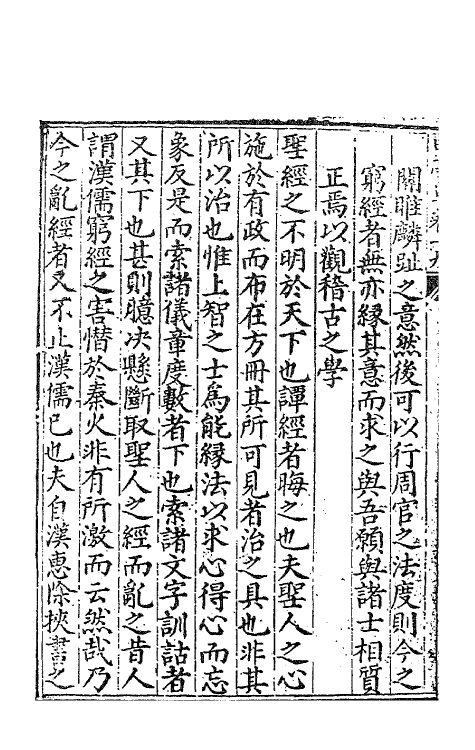 關雎麟趾之意然後可以行周官之法度則今之
窮經者無亦緣其意而求之與吾願與諸士相質
正焉以觀稽古之學
聖經之不明於天下也譚經者晦之也夫聖人之心
施於有政而布在方冊其所可見者治之具也非其
所以治也惟上智之士爲能緣法以求心得心而忘
象反是而索諸儀章度數者下也索諸文字訓詁者
又其下也甚則臆决懸斷取聖人之經而亂之昔人
謂漢儒窮經之害憯於秦火非有所激而云然哉乃
今之亂經者又不止漢儒已也夫自漢惠除挾書之